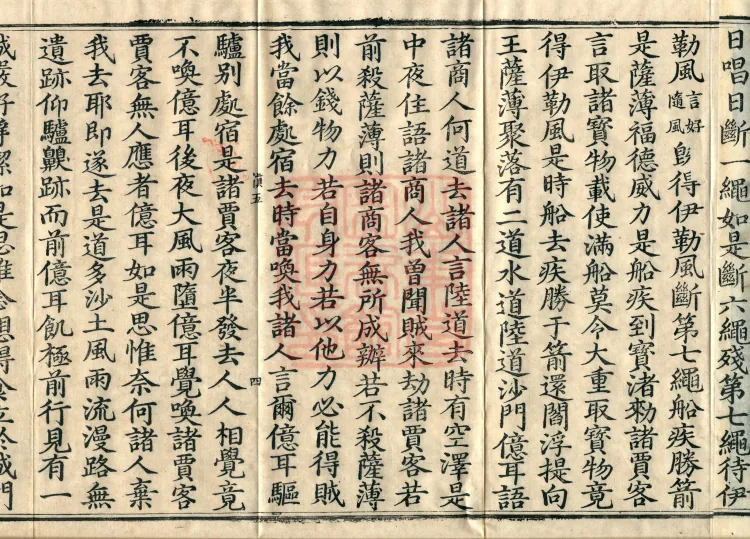 日唱日斷一繩如是斷六繩殘第七繩待伊
勒風 隨風 言好 即得伊勒風斷第七繩船疾勝箭
是薩薄福德威力是船疾到寶渚勑諸賈客
言取諸寶物載使滿船莫令大重取寶物竟
得伊勒風是時船去疾勝于箭還閻浮提向
王薩薄聚落有二道水道陸道沙門億耳語
諸商人何道去諸人言陸道去時有空澤是
中夜住語諸商人我曾聞賊來劫諸賈客若
前殺薩薄則諸商客無所成辦若不殺薩薄
則以錢物力若自身力若以他力必能得賊
我當餘處宿去時當喚我諸人言爾億耳驅
貞五 四
驢別處宿是諸賈客夜半發去人人相覺竟
不喚億耳後夜大風雨墮億耳覺喚諸賈客
賈客無人應者億耳如是思惟奈何諸人棄
我去耶即遂去是道多沙土風雨流漫路無
遺跡仰驢齅跡而前億耳飢極前行見有一
城嚴好淨潔如是思惟念想得食立於城門